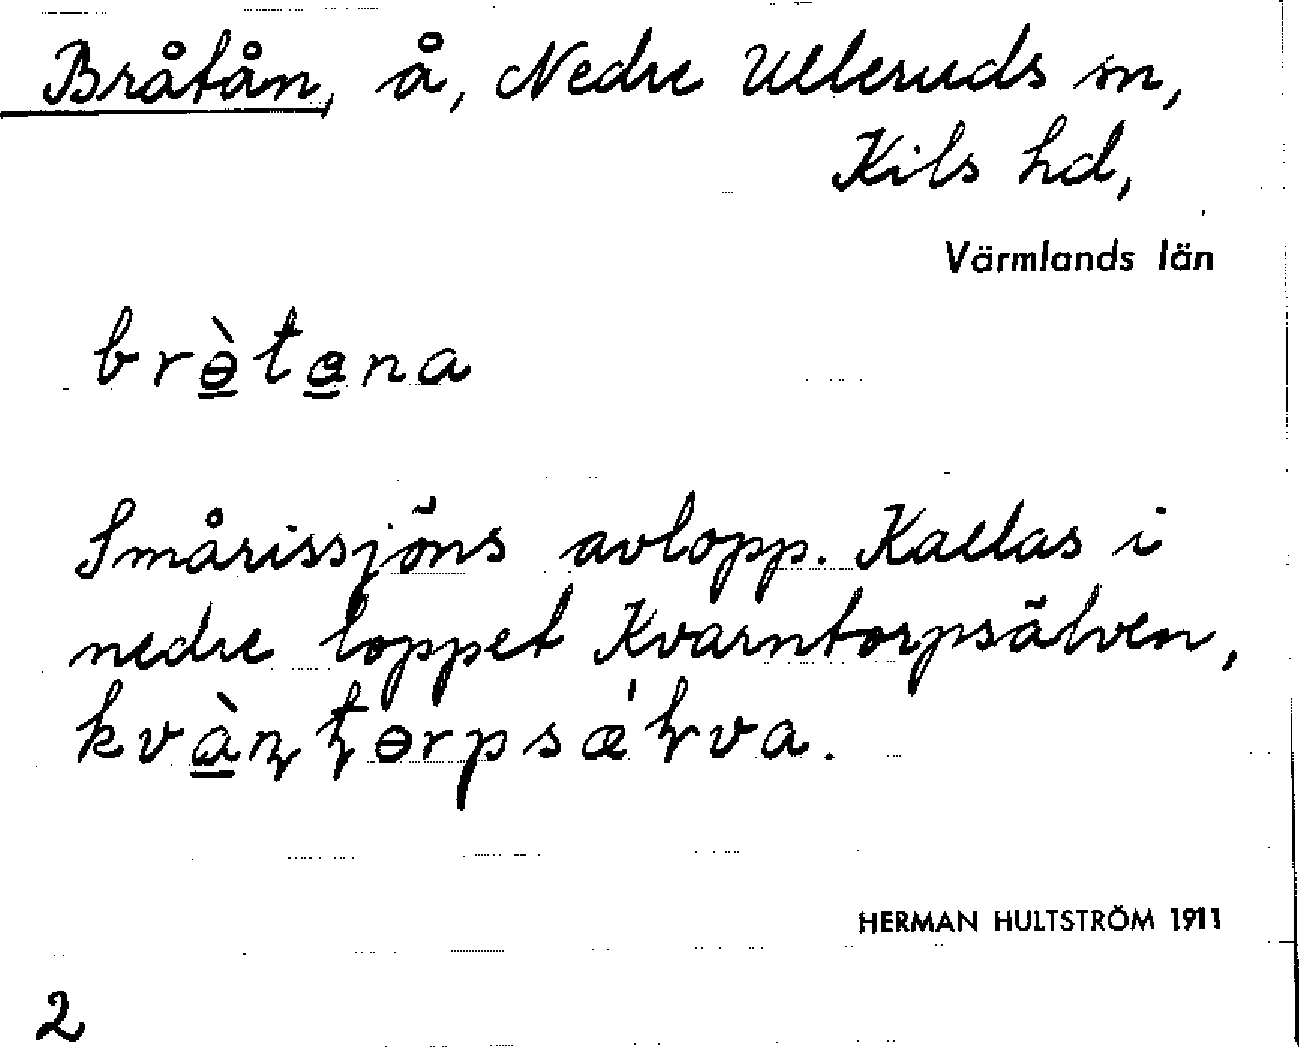 Bråtån, å, Nedre Ulleruds sn,
Kils hd,
Värmlands län
brɵ̲̀ta̲na
Smårissjöns avlopp. Kallas i
nedre loppet Kvarntorpsälven,
kvà̲ɳʈɵrpsǽɽva.
HERMAN HULTSTRÖM 1911
2